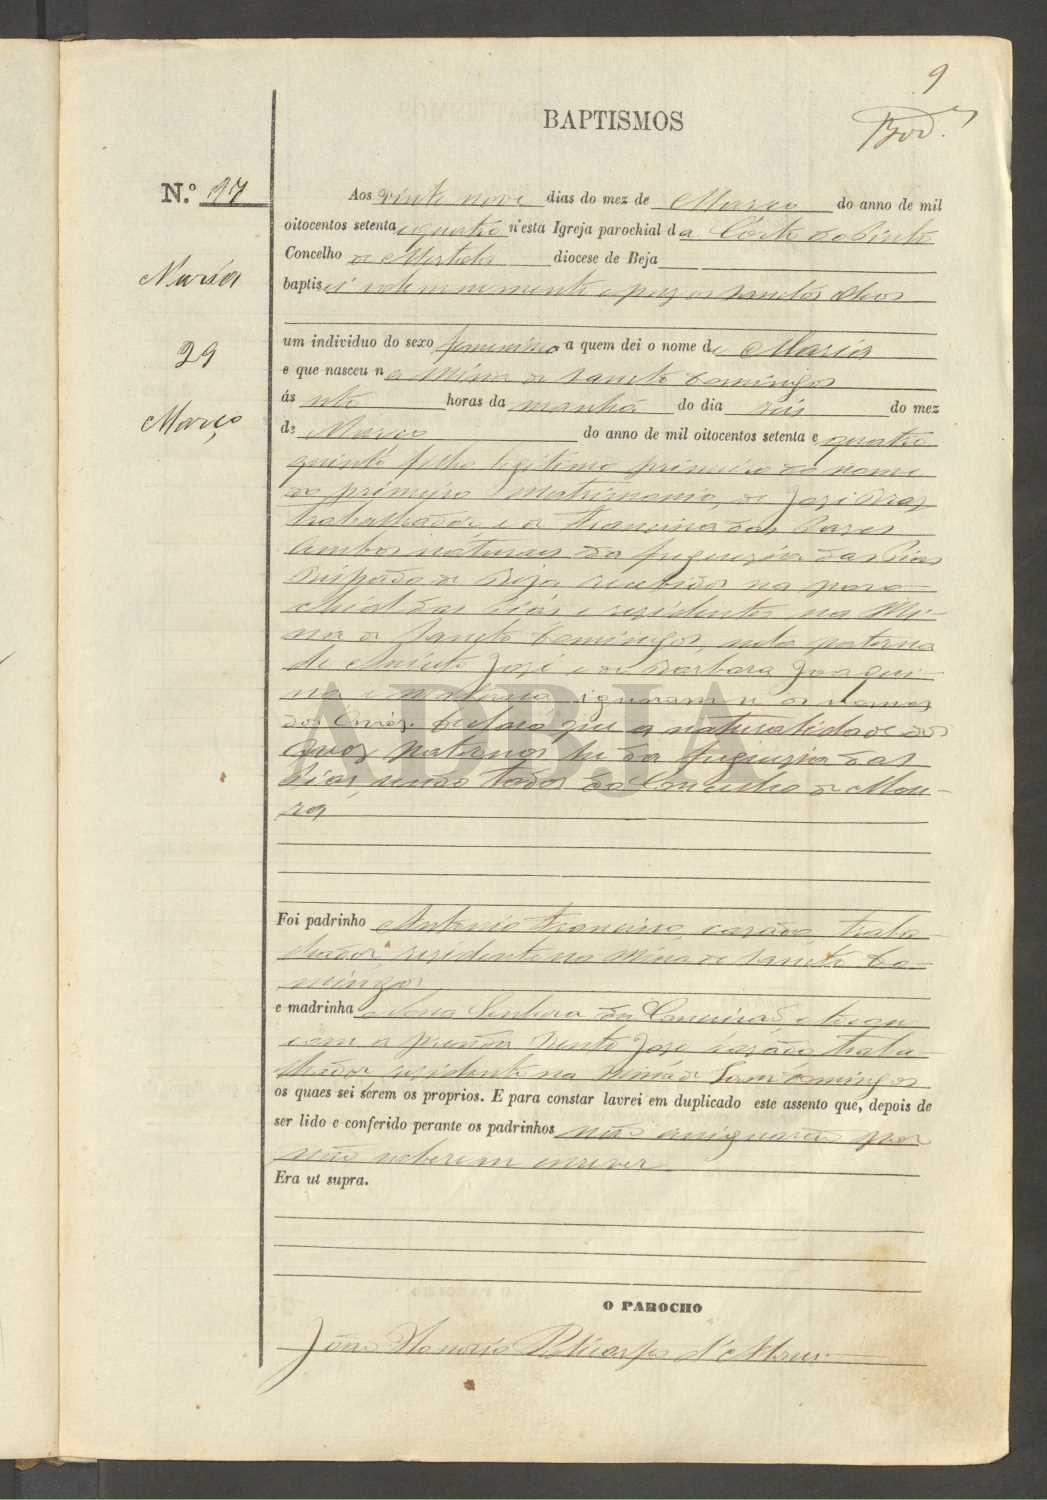 9
BAPTISMOS
N.º 17
Aos vinte nove dias do mez de Março do anno de mil
oitocentos setenta e quatro n'esta Igreja parochial da Côrte do Pinto
Concelho de Mertola diocese de Beja
Maria
baptisei solemnemente e puz os sanctos oleos
um individuo do sexo femenino a quem dei o nome de Maria
29
e que nasceu na Mina de Sancto Domingos
ás oito horas da manhã do dia seis do mez
Março
de Março do anno de mil oitocentos setenta e quatro
quinto filho legitimo primeiro do nome
do primeiro matrimonio, de José Braz
trabalhador, e de Francisca das Dores
ambos naturaes da freguezia das Pias
Bispado de Beja recebidos na paro-
chial das Pias e rezidentes na Mi-
na de Sancto Domingos, neta paterna
de José e de Barbara Joaqui-
na e materna ignoram-se os nomes
dos avós. Declaro que a naturalidade dos
avos paternos he da freguezia das
Pias, sendo todos do Concelho de Mou-
ra
ADBJA
Foi padrinho Antonio Francisco, cazado, traba-
lhador, rezidente na Mina de Sancto Do-
mingos
e madrinha Nossa Senhora da Conceição e tocou
com a prenda Bento José cazado traba-
lhador rezidente na Mina de Sam Domingos
os quaes sei serem os proprios. E para constar lavrei em duplicado este assento que, depois de
ser lido e conferido perante os padrinhos não assignarão por
não saberem escrever
Era ut supra.
O PAROCHO
João Honorio Policarpo d'Abreu